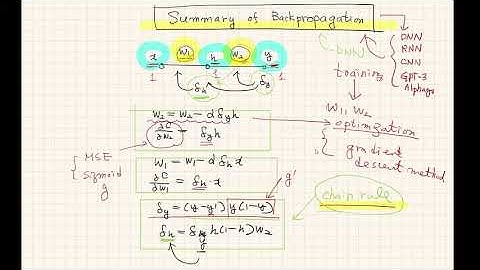 Summary of Backpropagation
DNN
RNN
CNN
GPT-3
Alphago
DNN
x w1 h w2 y
1 1 1
training
δh δy
w1, w2
optimization
gradient
descent method
w2 = w2 - αδyh
∂C/∂w2 = δyh
MSE
sigmoid
g
w1 = w1 - αδh x
∂C/∂w1 = δh·x
g'
chain rule
δy = (y-y') y(1-y)
δh = δy h(1-h)w2